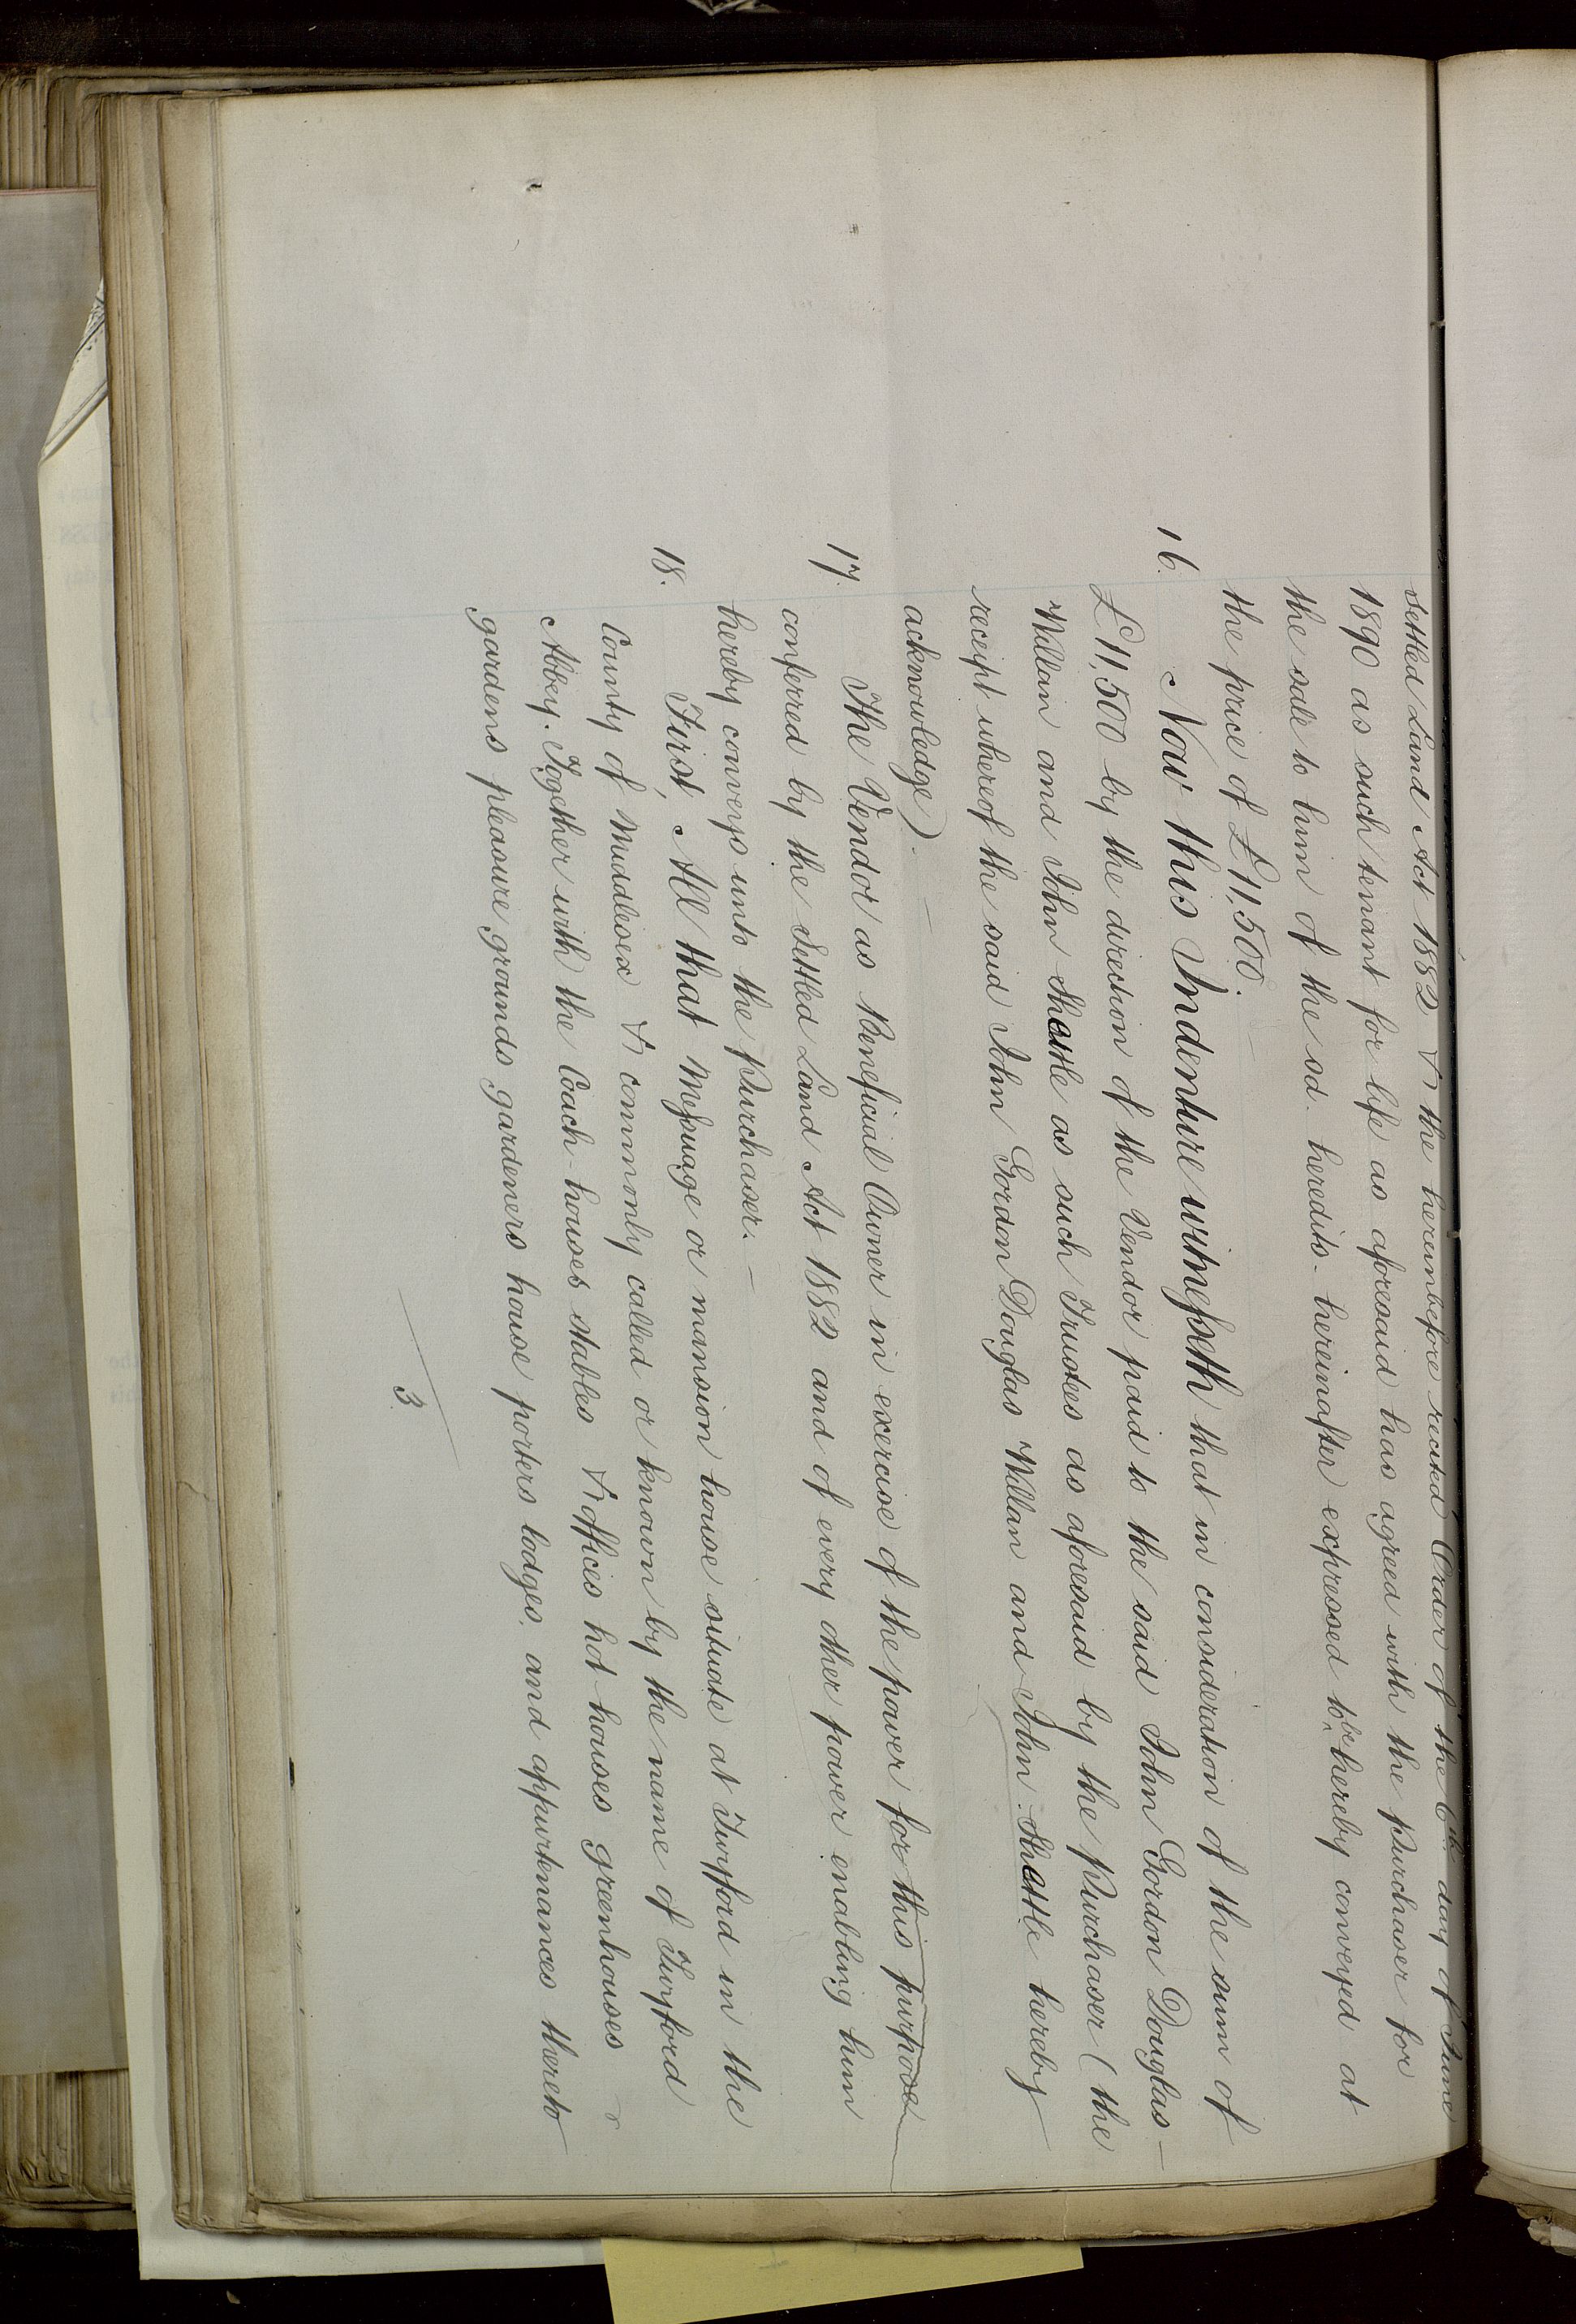 settled Land Act 1882 & the hereinbefore recited Order of the 6th day of June
1890 as such tenant for life as aforesaid has agreed with the Purchaser for
the sale to him of the sd. heredits. hereinafter expressed to be hereby conveyed at
the price of £11,500.
16. Now this Indenture witnesseth that in consideration of the sum of
£11,500 by the direction of the Vendor paid to the said John Gordon Douglas
Willan and John Shettle as such Trustees as aforesaid by the Purchaser (the
receipt whereof the said John Gordon Douglas Willan and John Shettle hereby
acknowledge).
17. The Vendor as Beneficial Owner in exercise of the power for this purpose
conferred by the Settled Land Act 1882 and of every other power enabling him
hereby conveys unto the Purchaser.
18. First, All that Messuage or mansion house situate at Twyford in the
County of Middlesex & commonly called or known by the name of Twyford
Abbey. Together with the Coach-houses stables & offices hot houses greenhouses
gardens pleasure grounds gardeners house porters lodges, and appurtenances thereto
3